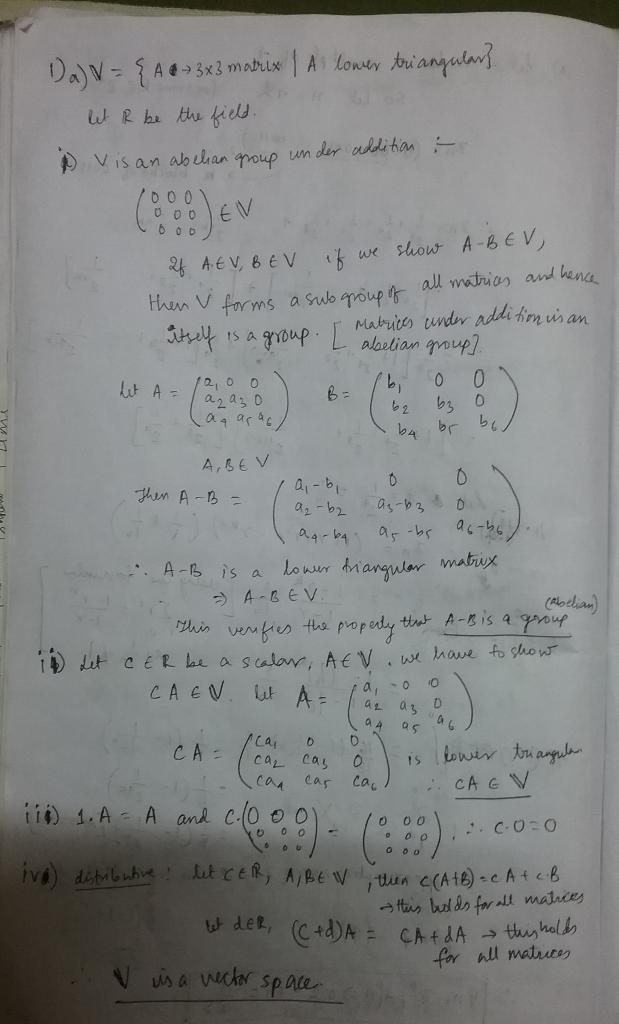 1) a) V = { A → 3x3 matrix | A lower triangular}
let R be the field.
i) V is an abelian group under addition :-
( 0 0 0
0 0 0
0 0 0 ) ∈ V
If A ∈ V, B ∈ V if we show A-B ∈ V,
then V forms a subgroup of all matrices and hence
itself is a group. [ Matrices under addition is an
abelian group].
let A = ( a1 0 0
a2 a3 0
a4 a5 a6 ) B = ( b1 0 0
b2 b3 0
b4 b5 b6 )
A, B ∈ V
Then A-B = ( a1-b1 0 0
a2-b2 a3-b3 0
a4-b4 a5-b5 a6-b6 ).
∴ A-B is a lower triangular matrix
⇒ A-B ∈ V.
This verifies the property that A-B is a group (abelian)
ii) Let c ∈ R be a scalar, A ∈ V. we have to show
CA ∈ V. let A = ( a1 0 0
a2 a3 0
a4 a5 a6 )
CA = ( ca1 0 0
ca2 ca3 0
ca4 ca5 ca6 ) is lower triangular
∴ CA ∈ V
iii) 1.A = A and c.( 0 0 0
0 0 0
0 0 0 ) = ( 0 0 0
0 0 0
0 0 0 ), ∴ c.0=0
iv) distributive : let c ∈ R, A, B ∈ V, then c(A+B) = cA + c.B
→ this holds for all matrices
let d ∈ R, (c+d)A = CA + dA → this holds
for all matrices
∴ V is a vector space.